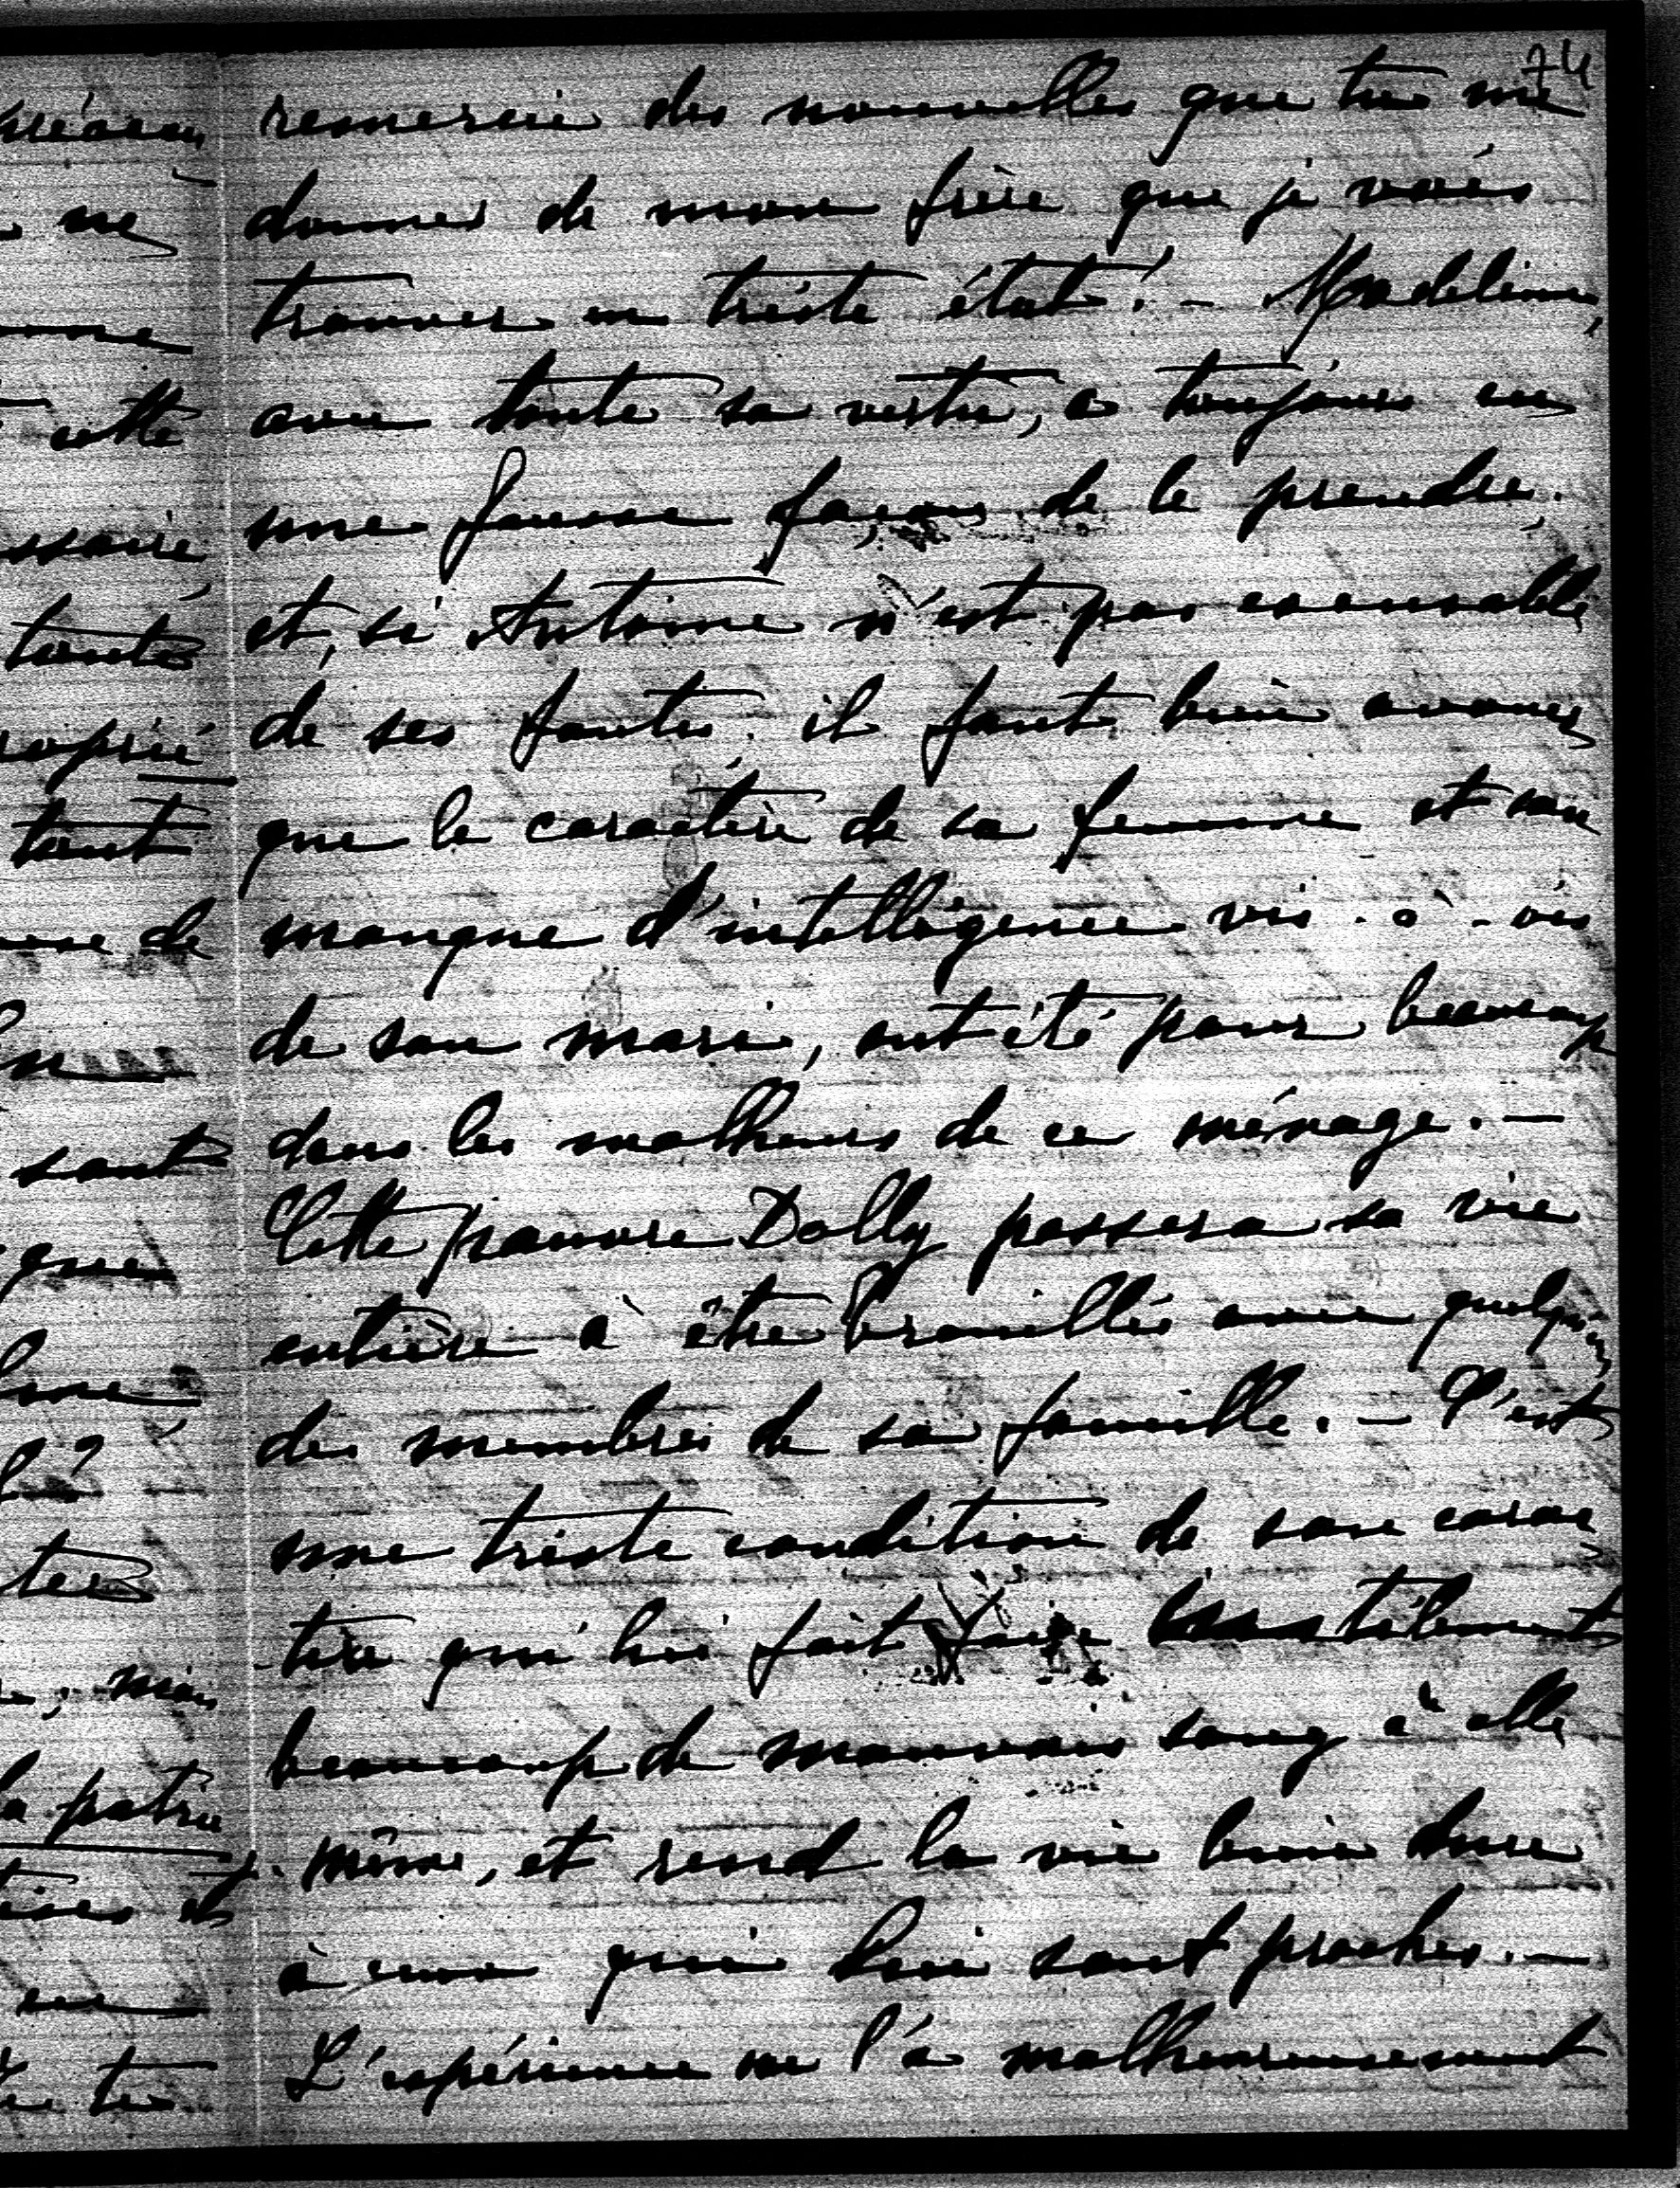 74
remercie des nouvelles que tu me
donnes de mon frère que je vais
trouver en triste état. - Madeleine,
avec toute sa vertu, a toujours eu
une fausse façon de le prendre.
et, si Antoine n'est pas excusable
de ses fautes, il faut bien avouer
que le caractère de sa femme et son
manque d'intelligence vis-à-vis
de son mari, ont été pour beaucoup
dans les malheurs de ce ménage. -
Cette pauvre Dolly passera sa vie
entière à être brouillée avec quelqu'un
des membres de sa famille. - C'est
une triste condition de son carac
tère qui lui fait faire inutilement
beaucoup de mauvais sang à elle
même, et rend la vie bien dure
à ceux qui lui sont proches. -
L'expérience ne l'a malheureusement
ne
cette
tant
de
sont
que
mais
la patrie
et